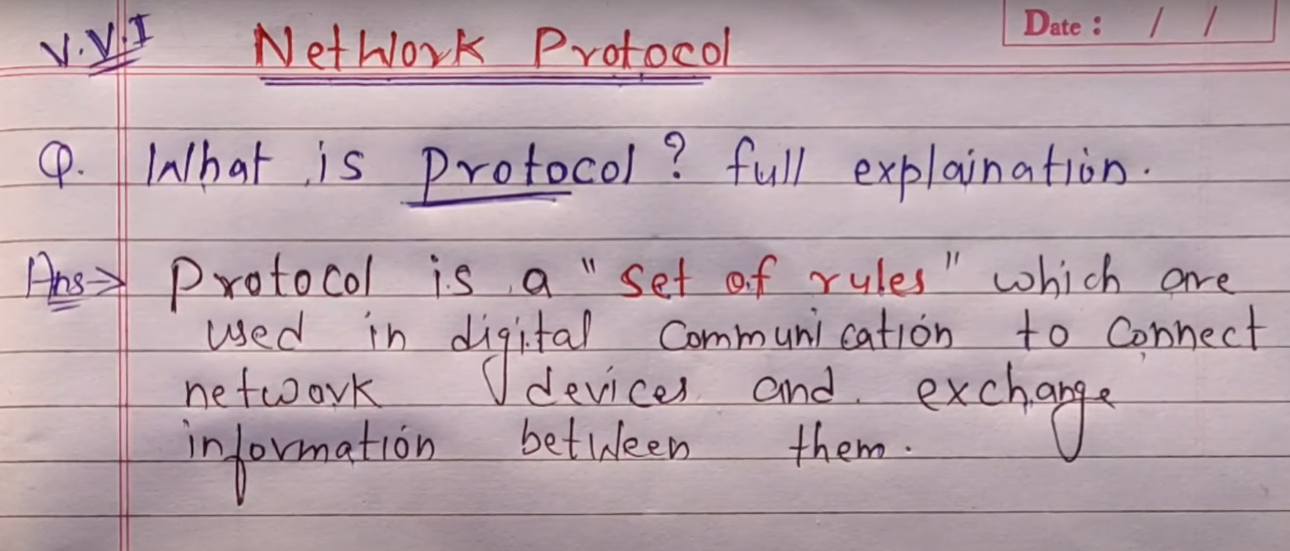 V.V.I Network Protocol Date : / /
Q. What is Protocol? full explaination.
Ans→ Protocol is a "set of rules" which are
used in digital communication to connect
network devices and exchange
information between them.